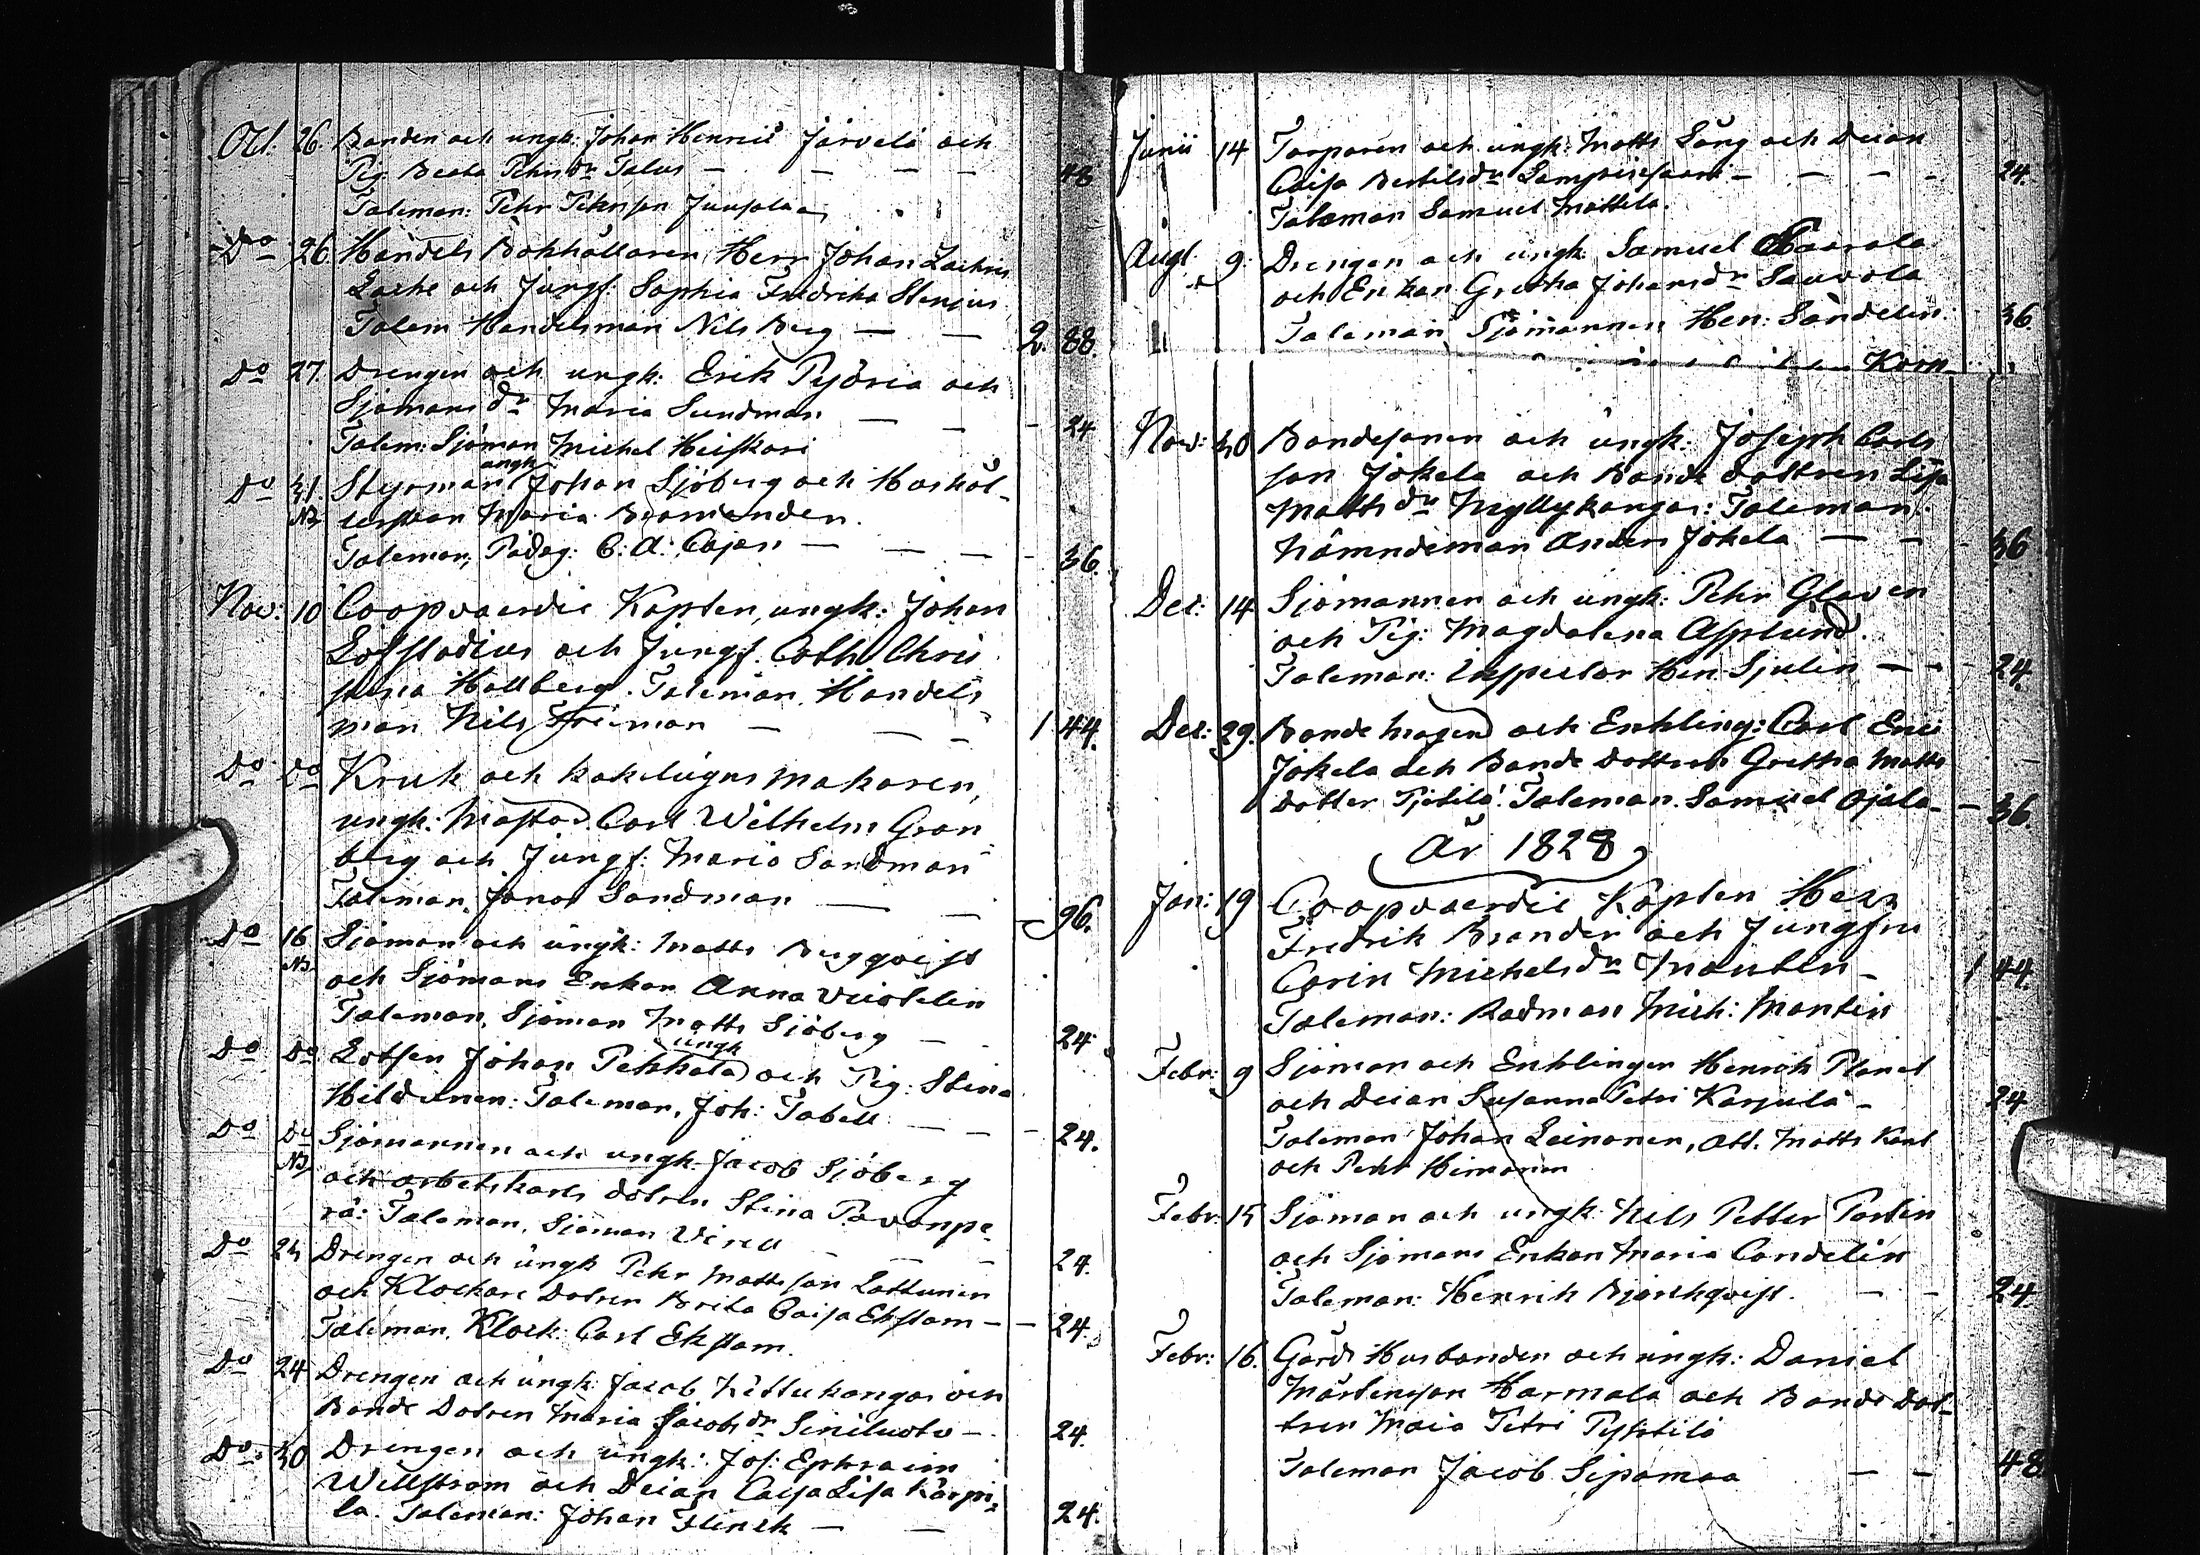 Oct. 26. Bonden och ungk: Johan Henric Järvelä och
Pig. Beata Pehrsdr Talus — — — — 48
Taleman: Pehr Pehrsson Juusola
Do 26 Handels Bokhållaren Herr Johan Zachris
Lache och Jungf: Sophia Fredrika Stenius
Talem Handelsman Nils Berg — — 2. 88.
Do 27. Drengen och ungk: Erik Pyöria och
Sjömans dr Maria Sundman — — - 24
Talem: Sjöman Michel Heiskari
ungk
Do 31. Styrman Johan Sjöberg och Hushål-
NB lerskan Maria Bromanden.
Taleman, Pädag: C: A: Cajan — — — - 36.
Nov: 10 Coopvaerdie Kapten, ungk: Johan
Löfstadius och Jungf. Cath Chri
stina Hallberg. Taleman, Handels
man Nils Friman — — — 1 44.
Do Do Kruk och kakelugns makaren,
ungk: Mästar Carl Wilhelm Gran
berg och Jungf: Maria Sandman
Taleman, Jonas Sandman — — - 96.
Do 16 Sjöman och ungk: Matts Bergqvist
NB
och Sjömans Enkan Anna
Taleman, Sjöman Matts Sjöberg — 24.
ungk
Do Do Lotsen Johan Pekkala och Pig: Stina
Hildunen: Taleman, Joh: Tabell — — - 24.
Do Do Sjömannen och ungk. Jacob Sjöberg
NB
och arbetskarls dotren Stina Pavanpe
rä: Taleman, Sjöman Virell — — 24.
Do 24 Drengen och ungk Pehr Mattsson Lattunen
och Klockare Dotren Brita Caisa Ekstam — - 24.
Taleman, Klock: Carl Ekstam.
Do 24 Drengen och ungk: Jacob Kettukangas och
Bonde Dotren Maria Jacobs dr Siniluoto — 24.
Do. 30 Drengen och ungk: Jos: Ephraim
Willström och Deian Caisa Lisa Karpi-
la. Taleman: Johan Flinck — — 24.
Junii 14 Torparen och ungk: Matts Lång och Deian
Caisa Bertilsdr Lampinsaari — — — - 24.
Taleman Samuel Mattila.
Augt. 9. Drengen och ungk. Samuel Haarala
och Enkan Gretha Johansdr Sauvola
Taleman, Sjömannen Hen: Sandelin. 36.
Korp
Nov: 30 Bondesonen och ungk: Joseph Carls
son Jokela och Bonde dottren Lisa
Matts dr Myllykangas: Taleman:
Nämndeman Anders Jokela — — 36
Dec: 14 Sjömannen och ungk: Pehr Glaven
och Pig: Magdalena Asplund.
Taleman: Inspector Hen Sjulin — - 24.
Dec: 29. Bonde Magen och Enkling: Carl Eric
Jokela och Bonde Dottren Gretha Matts
dotter Pjetilä. Taleman. Samuel Ojala — 36.
År 1828
Jan: 19 Coopvaerdie Kapten Herr
Fredrik Brander och Jungfru
Carin Michelsdr Mantin — 1 44.
Taleman: Rådman Mich: Montin
Febr: 9 Sjöman och Enklingen Henrich Planet
och Deian Susanna Petri Karjula — 24
Taleman Johan Leinonen, att. Matts Keat
och Pehr Himanen
Febr: 15 Sjöman och ungk: Nils Petter Portin
och Sjömans Enkan Maria Candelin
Taleman: Henrik Björckqvist. — - 24.
Febr: 16. Gårds Husbonden och ungk: Daniel
Mårtensson Harmala och Bonde Dot-
tren Maia Petri
Taleman Jacob Sipamaa — — 48